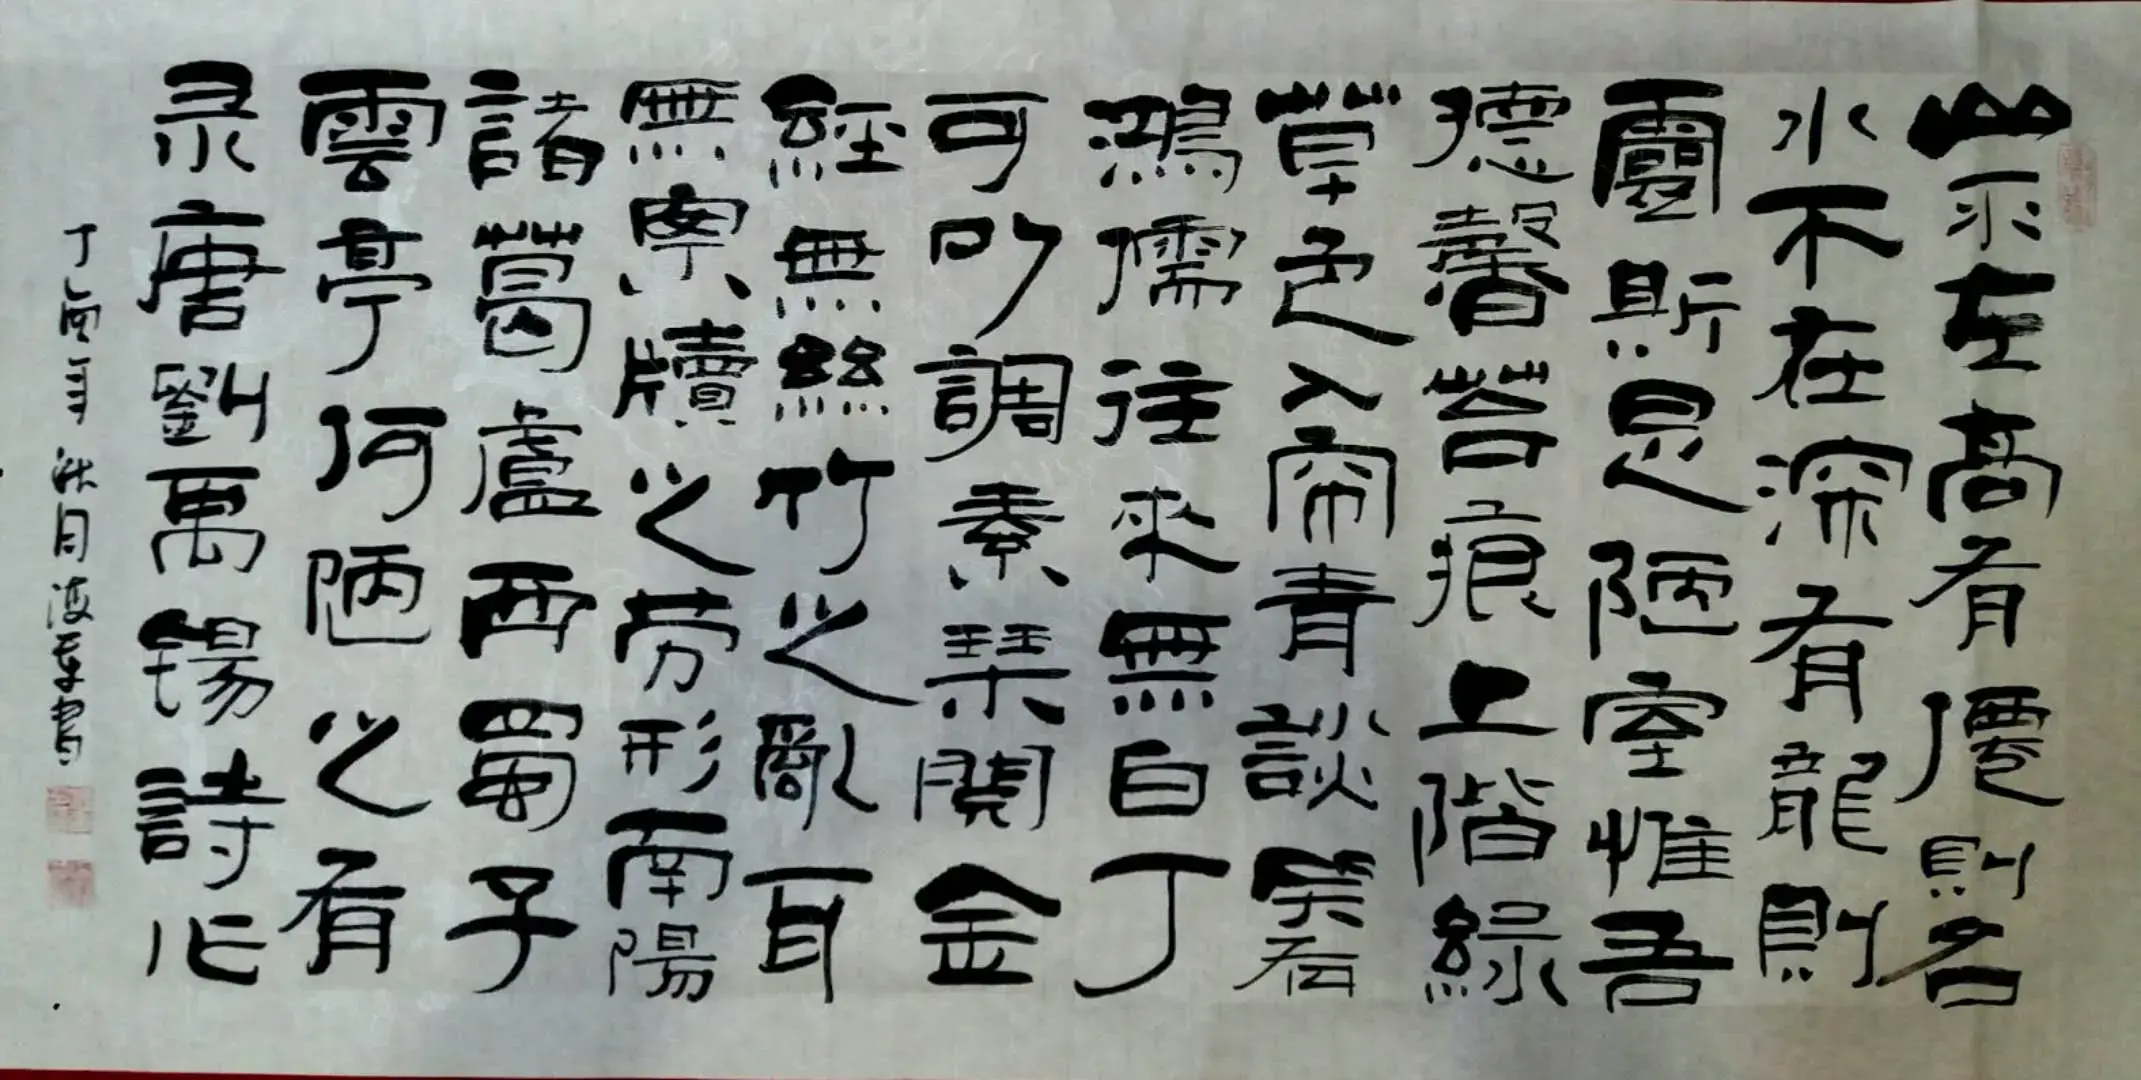 山不在高有僊則名
水不在深有龍則
靈斯是陋室惟吾
德馨苔痕上階綠
草色入帘青談笑有
鴻儒往來無白丁
可以調素琴閱金
經無絲竹之亂耳
無案牘之勞形南陽
諸葛盧西蜀子
雲亭何陋之有
录唐劉禹錫詩作
丁酉年秋月書